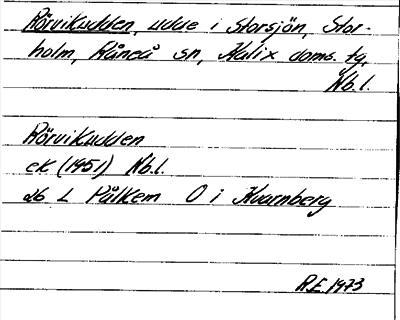 Rörvikudden, udde i Storsjön, Stor-
holm, Råneå sn, Kalix doms. tg,
Nb.l.
Rörvikudden
ek (1951) Nb.l.
26 L Pålkem O i Kvarnberg
R.E. 1973